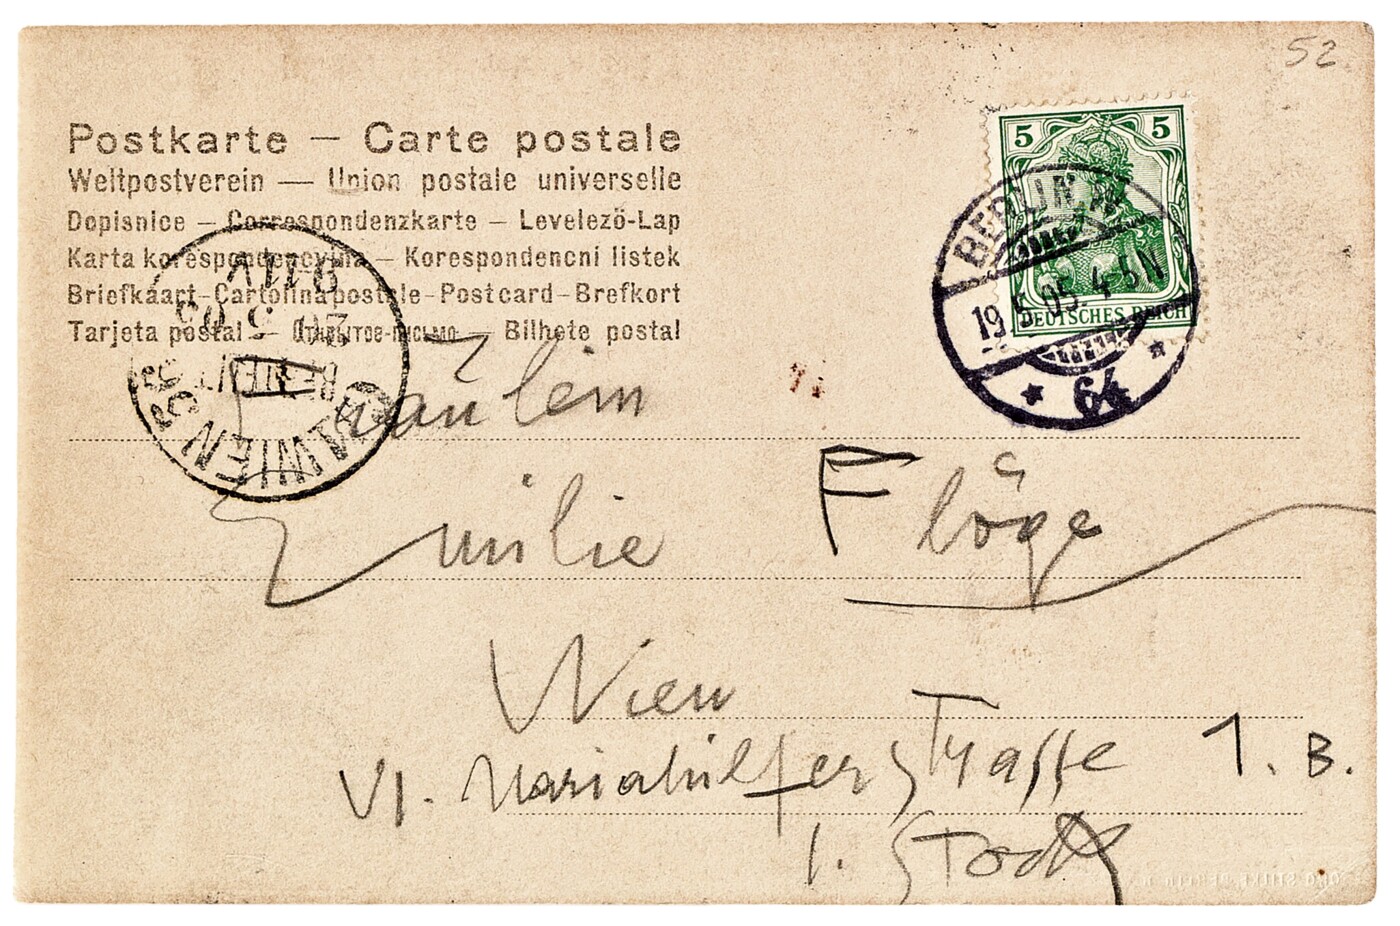 52
Postkarte — Carte postale
Weltpostverein — Union postale universelle
Dopisnice — Correspondenzkarte — Levelező-Lap
Karta korespondencyjna — Korespondencni listek
Briefkaart-Cartolina postale-Postcard-Brefkort
Tarjeta postal — Открытое-письмо — Bilhete postal
5 5
DEUTSCHES REICH
BERLIN W
19.5.05.4-5N
* 64 *
WIEN
20.5.05
BESTELLT
Fräulein
Emilie Flöge
Wien
VI. Mariahilferstrasse 1. B.
1. Stock